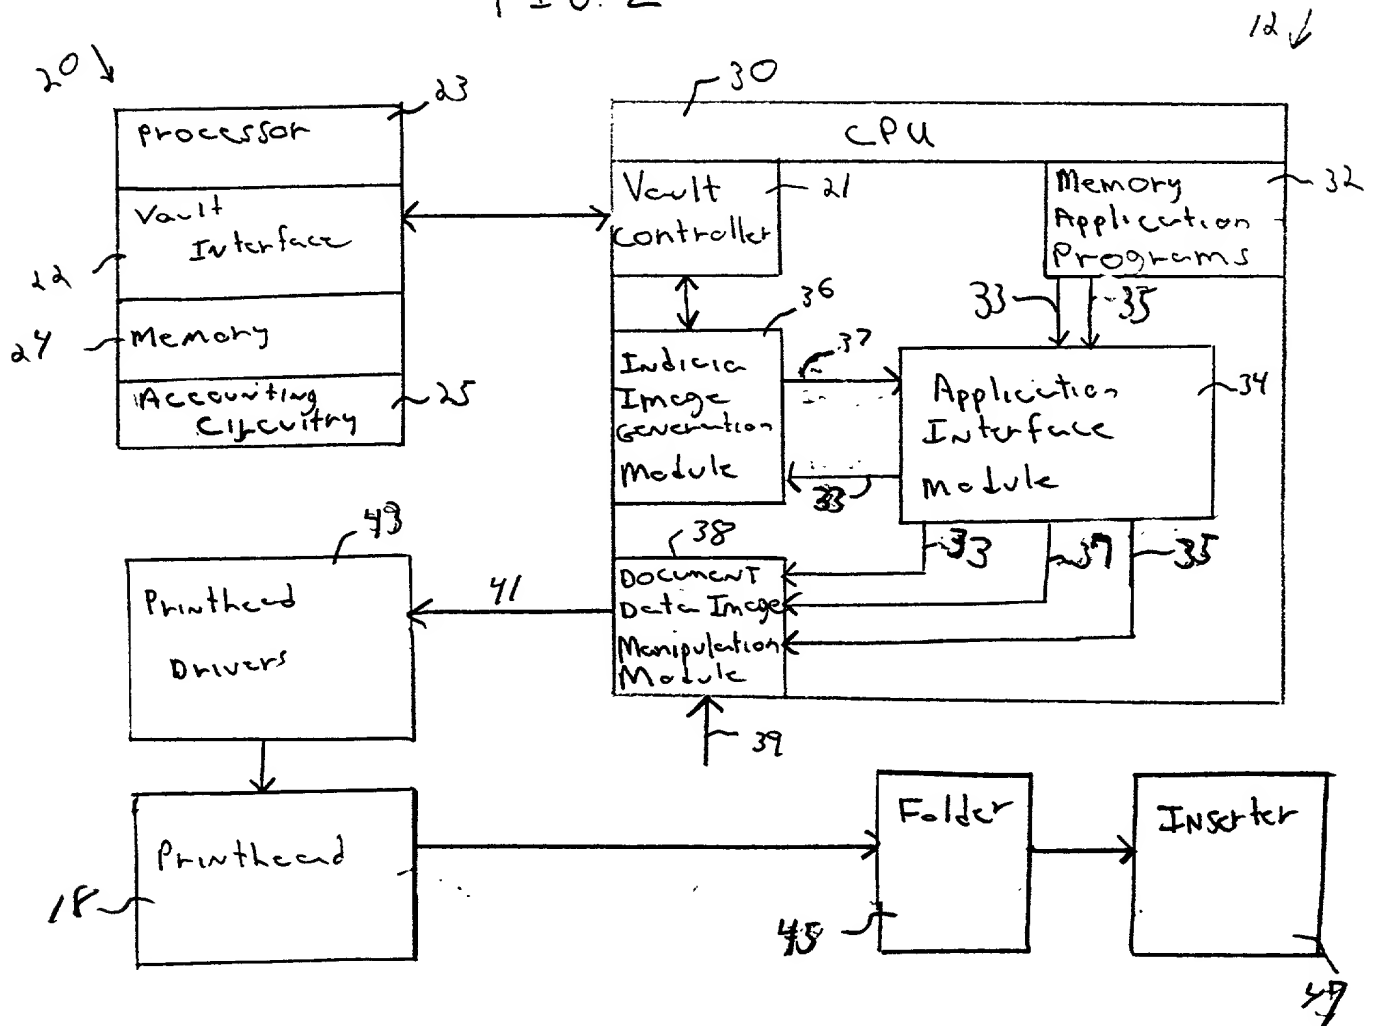 FIG. 2
12
20
23
Processor
Vault
Interface
22
24
Memory
Accounting
Circuitry
25
30
CPU
Vault
Controller
21
Memory
Application
Programs
32
33
35
36
Indicia
Image
Generation
Module
37
33
Application
Interface
Module
34
33
37
35
38
Document
Data Image
Manipulation
Module
39
41
43
Printhead
Drivers
Printhead
18
Folder
45
Inserter
47